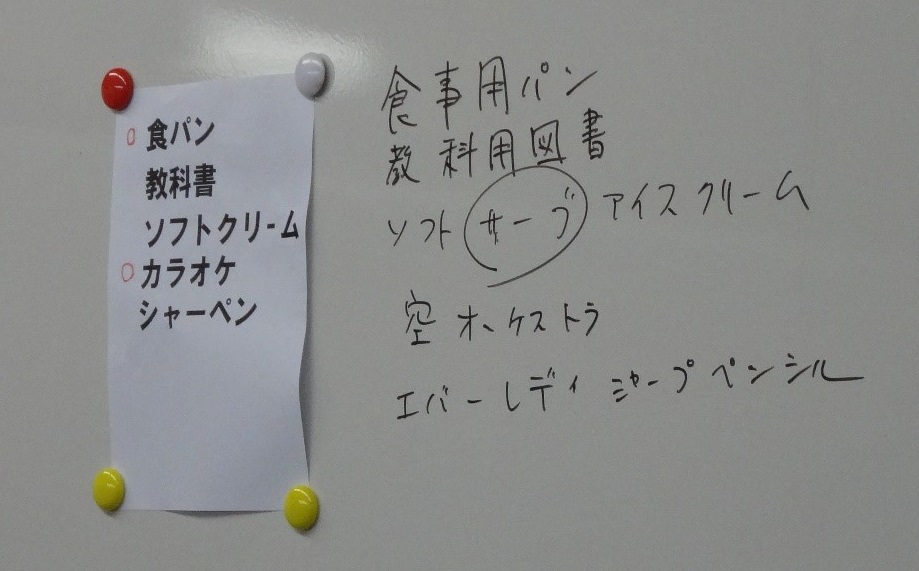 食パン
教科書
ソフトクリーム
カラオケ
シャーペン
食事用パン
教科用図書
ソフトサーブアイスクリーム
空オーケストラ
エバーレディ シャープペンシル